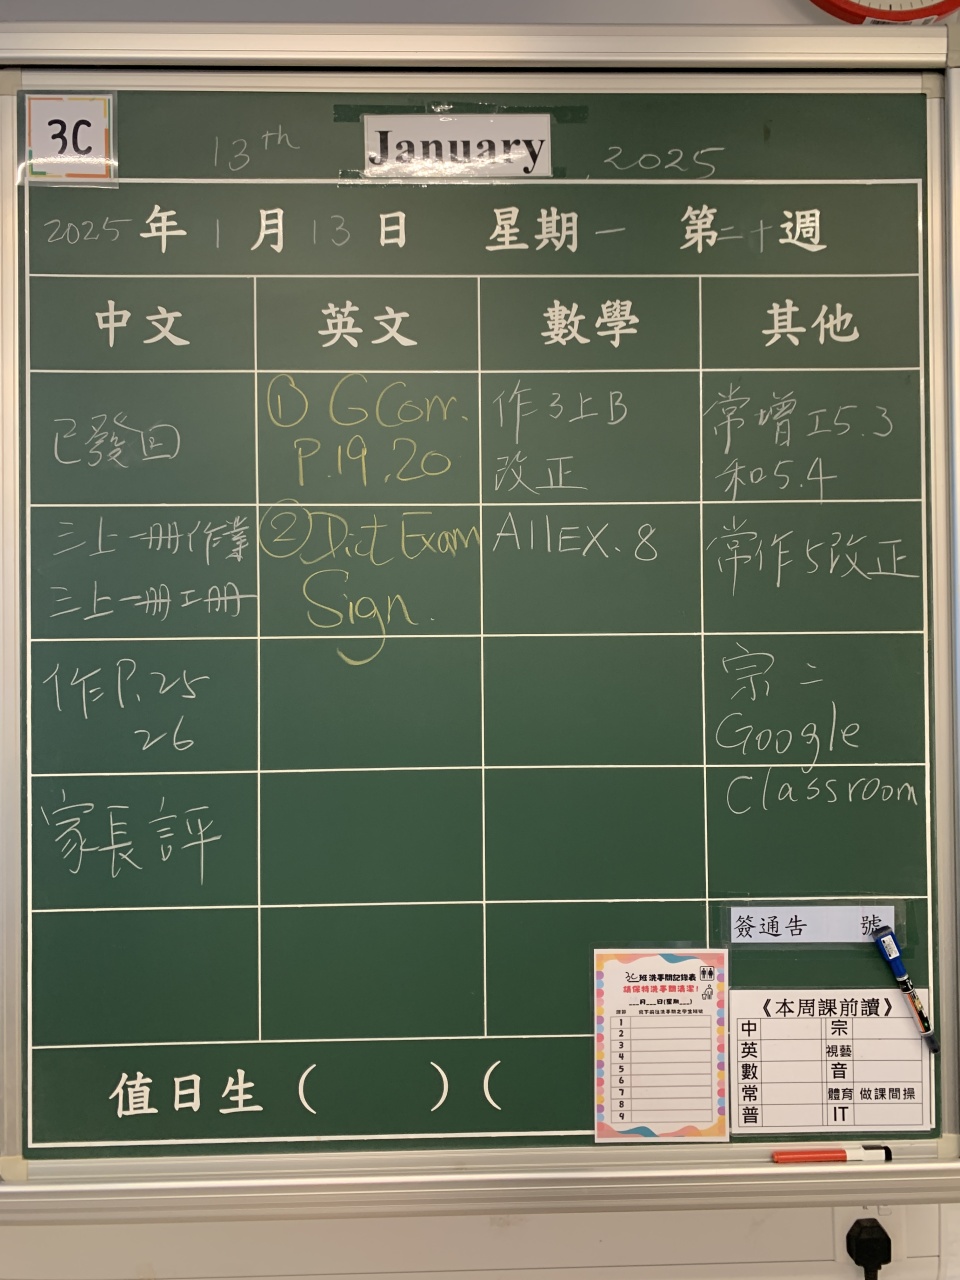 3C
13th January, 2025
2025年1月13日 星期一 第二十週
中文 英文 數學 其他
已發回
三上一冊作業
三上一冊工冊
作P.25
26
家長評
① G Corr.
P.19,20
② Dict Exam
Sign.
作3上B
改正
All EX.8
常增工5.3
和5.4
常作5改正
宗二
Google
Classroom
簽通告 號
3C班洗手間記錄表
請保持洗手間清潔!
___月___日(星期___)
1
2
3
4
5
6
7
8
9
《本周課前讀》
中 宗
英 視藝
數 音
常 體育 做課間操
普 IT
值日生( )(